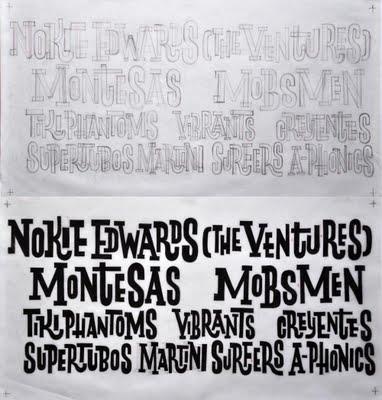 NOKIE EDWARDS (THE VENTURES)
MONTESAS MOBSMEN
TIKI PHANTOMS VIBRANTS CREYENTES
SUPERTUBOS MARTINI SURFERS A-PHONICS
NOKIE EDWARDS (THE VENTURES)
MONTESAS MOBSMEN
TIKI PHANTOMS VIBRANTS CREYENTES
SUPERTUBOS MARTINI SURFERS A-PHONICS